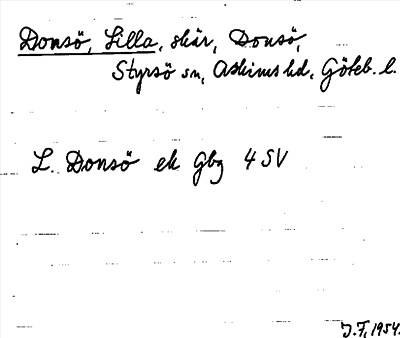 Donsö, Lilla, skär, Donsö,
Styrsö sn, Askims hd, Göteb. l.
L. Donsö ek Gbg 4 SV
J.F, 1954.